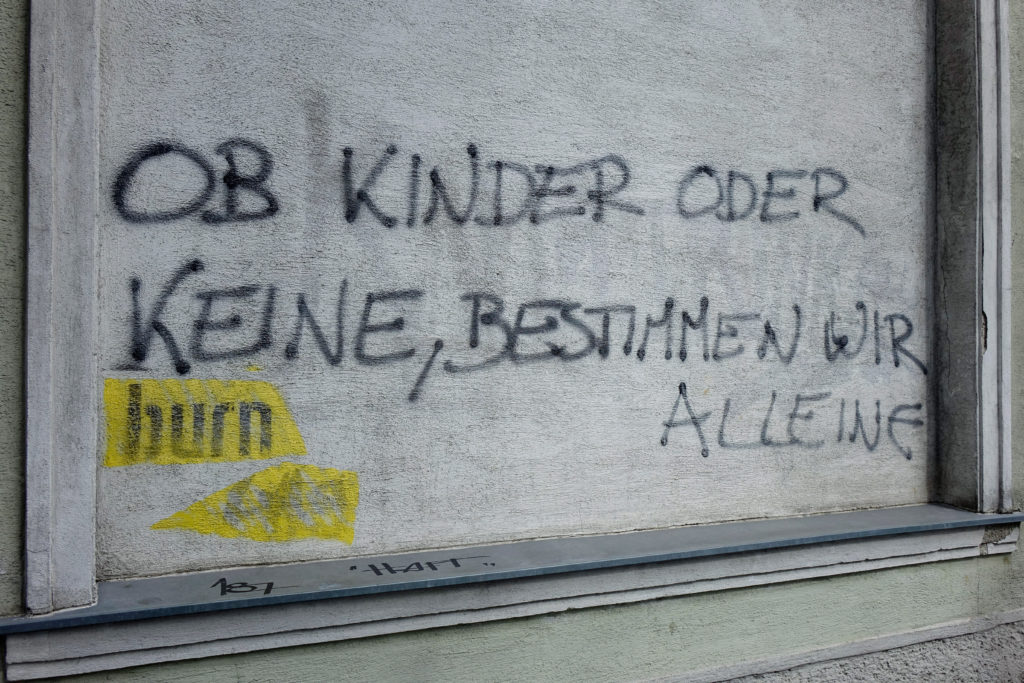 OB KINDER ODER
KEINE, BESTIMMEN WIR
ALLEINE
burn
187